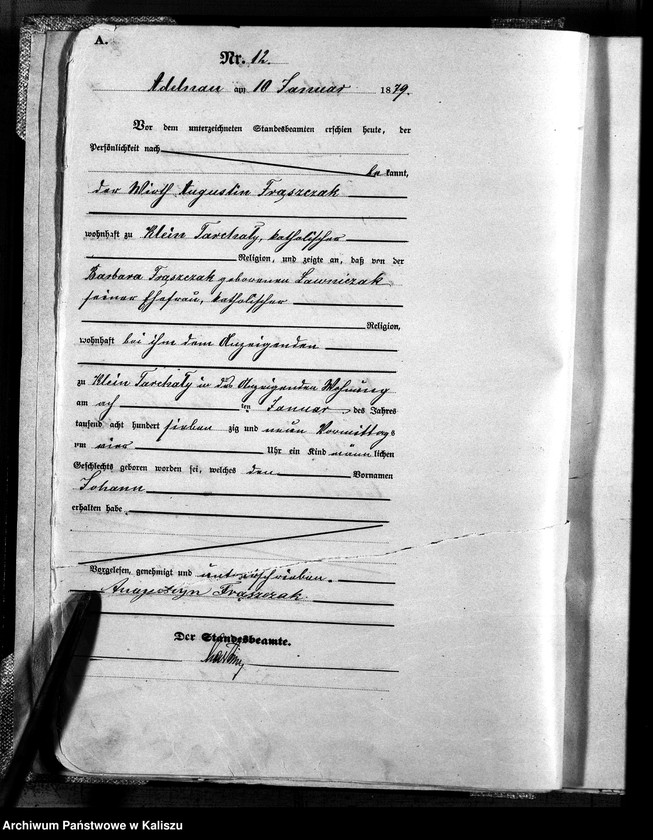 A.
Nr. 12.
Adelnau am 10 Januar 1879.
Vor dem unterzeichneten Standesbeamten erschien heute, der
Persönlichkeit nach
be kannt,
der Wirth Augustin Frąszczak
wohnhaft zu Klein Tarchały, katholischer
Religion, und zeigte an, daß von der
Barbara Frąszczak geborenen Lawniczak
seiner Ehefrau, katholischer
Religion,
wohnhaft bei ihm dem Anzeigenden
zu Klein Tarchały in des Anzeigenden Wohnung
am ach ten Januar des Jahres
tausend acht hundert sieben zig und neun Vormittags
um vier Uhr ein Kind männlichen
Geschlechts geboren worden sei, welches den Vornamen
Johann
erhalten habe.
Vorgelesen, genehmigt und unterschrieben.
Frąszczak
Der Standesbeamte.
Archiwum Państwowe w Kaliszu